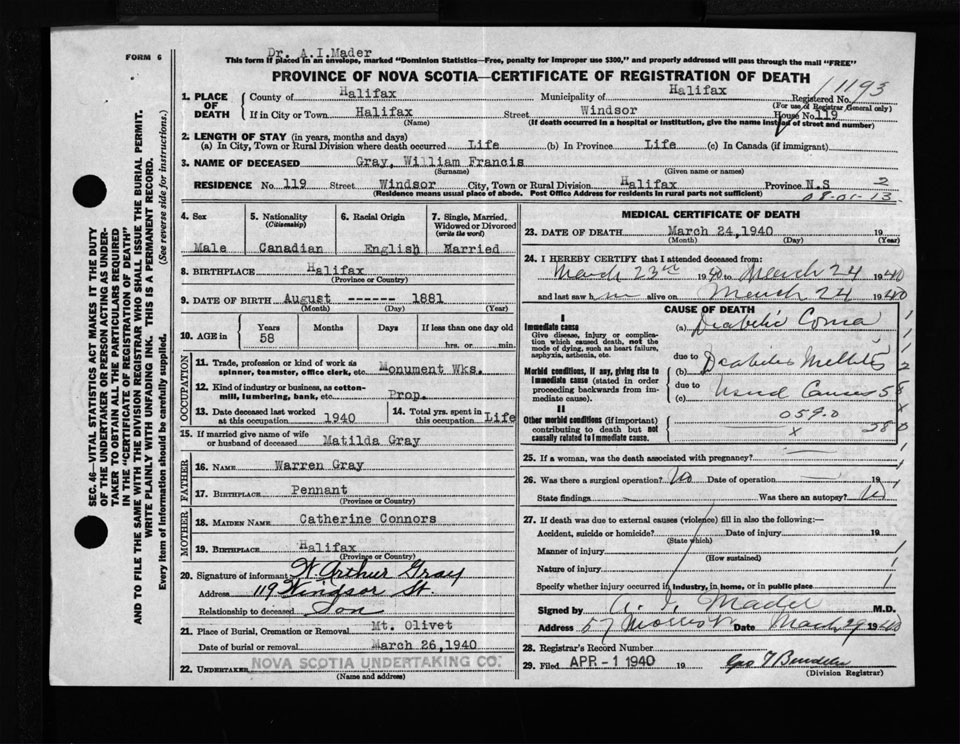 FORM 6
Dr. A.I.Mader
This form if placed in an envelope, marked "Dominion Statistics—Free, penalty for improper use $300," and properly addressed will pass through the mail "FREE"
PROVINCE OF NOVA SCOTIA—CERTIFICATE OF REGISTRATION OF DEATH
1193
1. PLACE OF DEATH
County of Halifax Municipality of Halifax Registered No.
(For use of Registrar General only)
If in City or Town Halifax Street Windsor House No. 119
(Name) (If death occurred in a hospital or institution, give the name instead of street and number)
2. LENGTH OF STAY (in years, months and days)
(a) In City, Town or Rural Division where death occurred Life (b) In Province Life (c) In Canada (if immigrant)
3. NAME OF DECEASED Gray, William Francis
(Surname) (Given name or names)
RESIDENCE No. 119 Street Windsor City, Town or Rural Division Halifax Province N.S 2
(Residence means usual place of abode. Post Office Address for residents in rural parts not sufficient) 08-01-13
4. Sex 5. Nationality 6. Racial Origin 7. Single, Married,
(Citizenship) Widowed or Divorced
(write the word)
Male Canadian English Married
8. BIRTHPLACE Halifax
(Province or Country)
9. DATE OF BIRTH August ------- 1881
(Month) (Day) (Year)
10. AGE in Years Months Days If less than one day old
58 hrs. or min.
OCCUPATION
11. Trade, profession or kind of work as
spinner, teamster, office clerk, etc. Monument Wks.
12. Kind of industry or business, as cotton-
mill, lumbering, bank, etc. Prop.
13. Date deceased last worked 14. Total yrs. spent in
at this occupation 1940 this occupation Life
15. If married give name of wife
or husband of deceased Matilda Gray
FATHER
16. NAME Warren Gray
17. BIRTHPLACE Pennant
(Province or Country)
MOTHER
18. MAIDEN NAME Catherine Connors
19. BIRTHPLACE Halifax
(Province or Country)
20. Signature of informant W. Arthur Gray
Address 119 Windsor St.
Relationship to deceased Son
21. Place of Burial, Cremation or Removal Mt. Olivet
Date of burial or removal March 26,1940
22. UNDERTAKER NOVA SCOTIA UNDERTAKING CO.
(Name and address)
MEDICAL CERTIFICATE OF DEATH
23. DATE OF DEATH March 24,1940 19
(Month) (Day) (Year)
24. I HEREBY CERTIFY that I attended deceased from:
March 23rd 1940 to March 24 1940
and last saw h im alive on March 24 1940
CAUSE OF DEATH
I
Immediate cause (a) Diabetic Coma
Give disease, injury or complica-
tion which caused death, not the
mode of dying, such as heart failure,
asphyxia, asthenia, etc.
due to
Morbid conditions, if any, giving rise to (b) Deabetes Mellitis
immediate cause (stated in order due to
proceeding backwards from im-
mediate cause). (c) Usual Causes 58
II 059.0
Other morbid conditions (if important) x 580
contributing to death but not
causally related to immediate cause.
25. If a woman, was the death associated with pregnancy?
26. Was there a surgical operation? No Date of operation 19
State findings Was there an autopsy? No
27. If death was due to external causes (violence) fill in also the following:—
Accident, suicide or homicide? Date of injury 19
(State which)
Manner of injury
(How sustained)
Nature of injury
Specify whether injury occurred in industry, in home, or in public place
Signed by A. I. Mader M.D.
Address 57 Morris St Date March 29 1940
28. Registrar's Record Number
29. Filed APR -1 1940 19
(Division Registrar)
SEC. 46—VITAL STATISTICS ACT MAKES IT THE DUTY
OF THE UNDERTAKER OR PERSON ACTING AS UNDER-
TAKER TO OBTAIN ALL THE PARTICULARS REQUIRED
IN THE "CERTIFICATE OF REGISTRATION OF DEATH"
AND TO FILE THE SAME WITH THE DIVISION REGISTRAR WHO SHALL ISSUE THE BURIAL PERMIT.
WRITE PLAINLY WITH UNFADING INK. THIS IS A PERMANENT RECORD.
Every item of information should be carefully supplied. (See reverse side for instructions.)